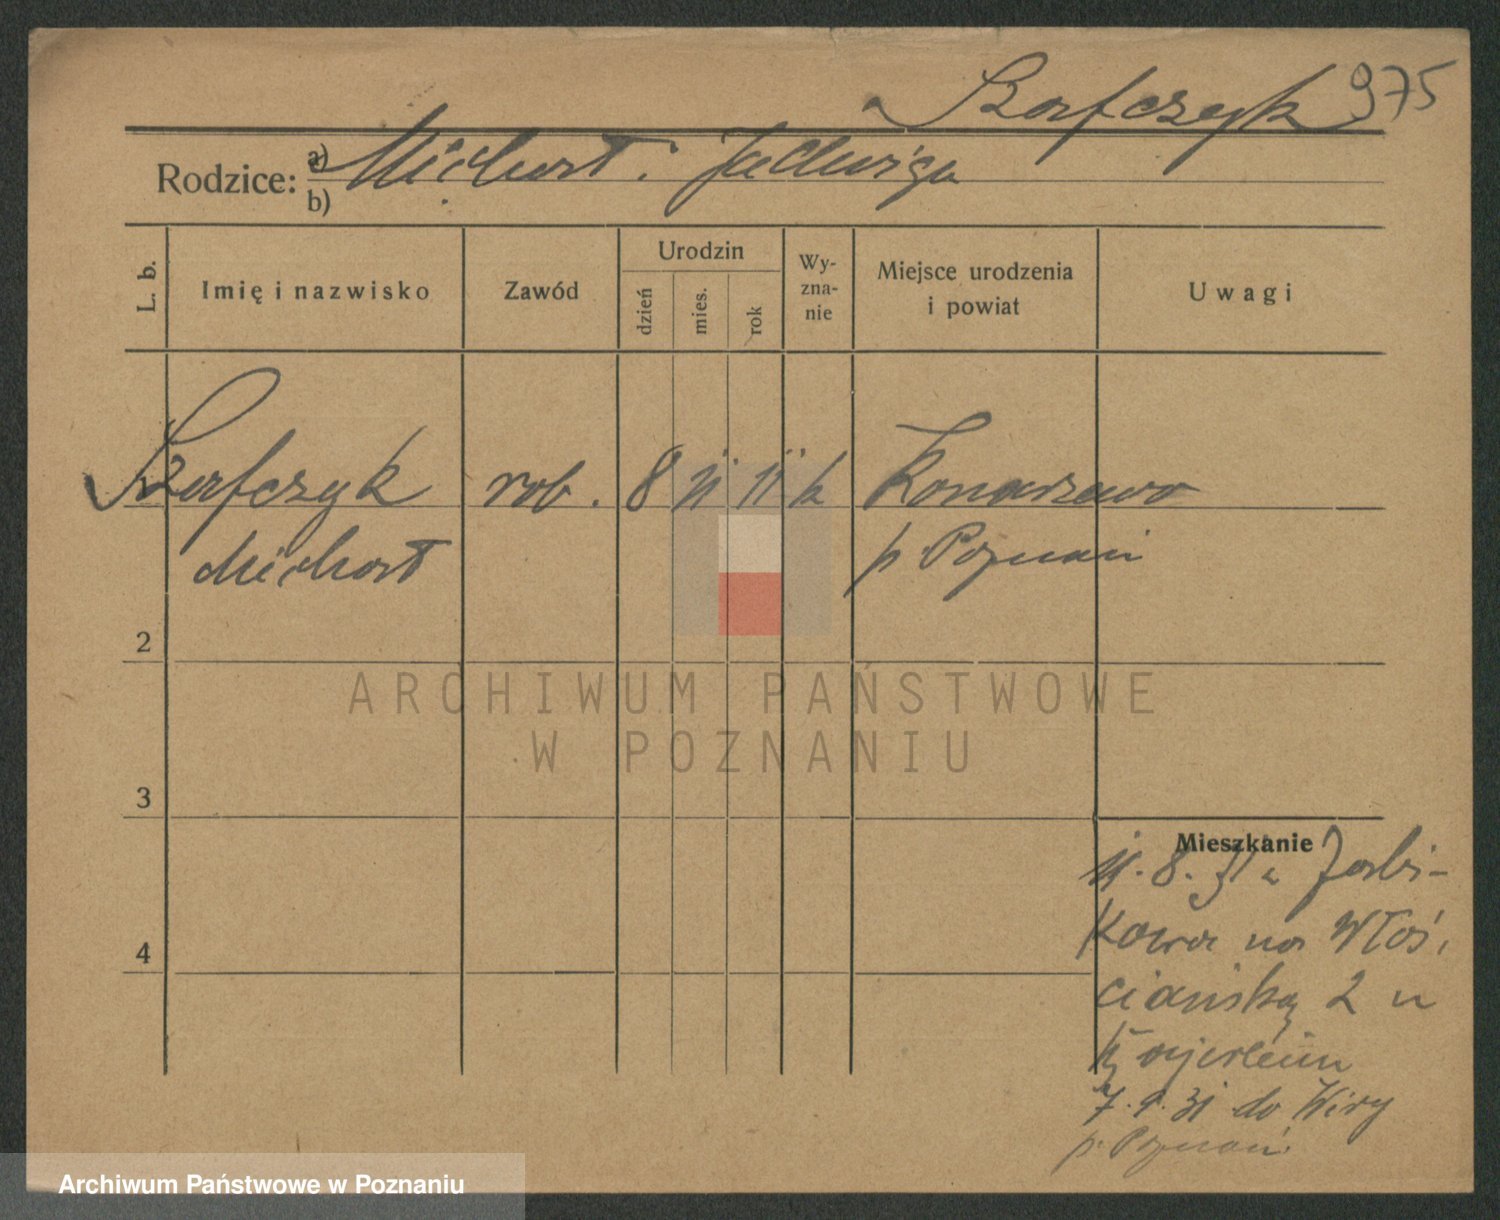 Szafczyk 975
Rodzice: a) Michał. Jadwiga
b)
L. b.
Imię i nazwisko
Zawód
Urodzin
dzień
mies.
rok
Wy-
zna-
nie
Miejsce urodzenia
i powiat
Uwagi
Szafczyk rob. 8 11 11 k Konarzewo
Michał p. Poznań
2
3
4
Mieszkanie
11. 8. 31 z Żabi-
kowa na Włoś-
ciańską 2 u
7. 9. 31 do Wiry
p. Poznań
ARCHIWUM PAŃSTWOWE
W POZNANIU
Archiwum Państwowe w Poznaniu